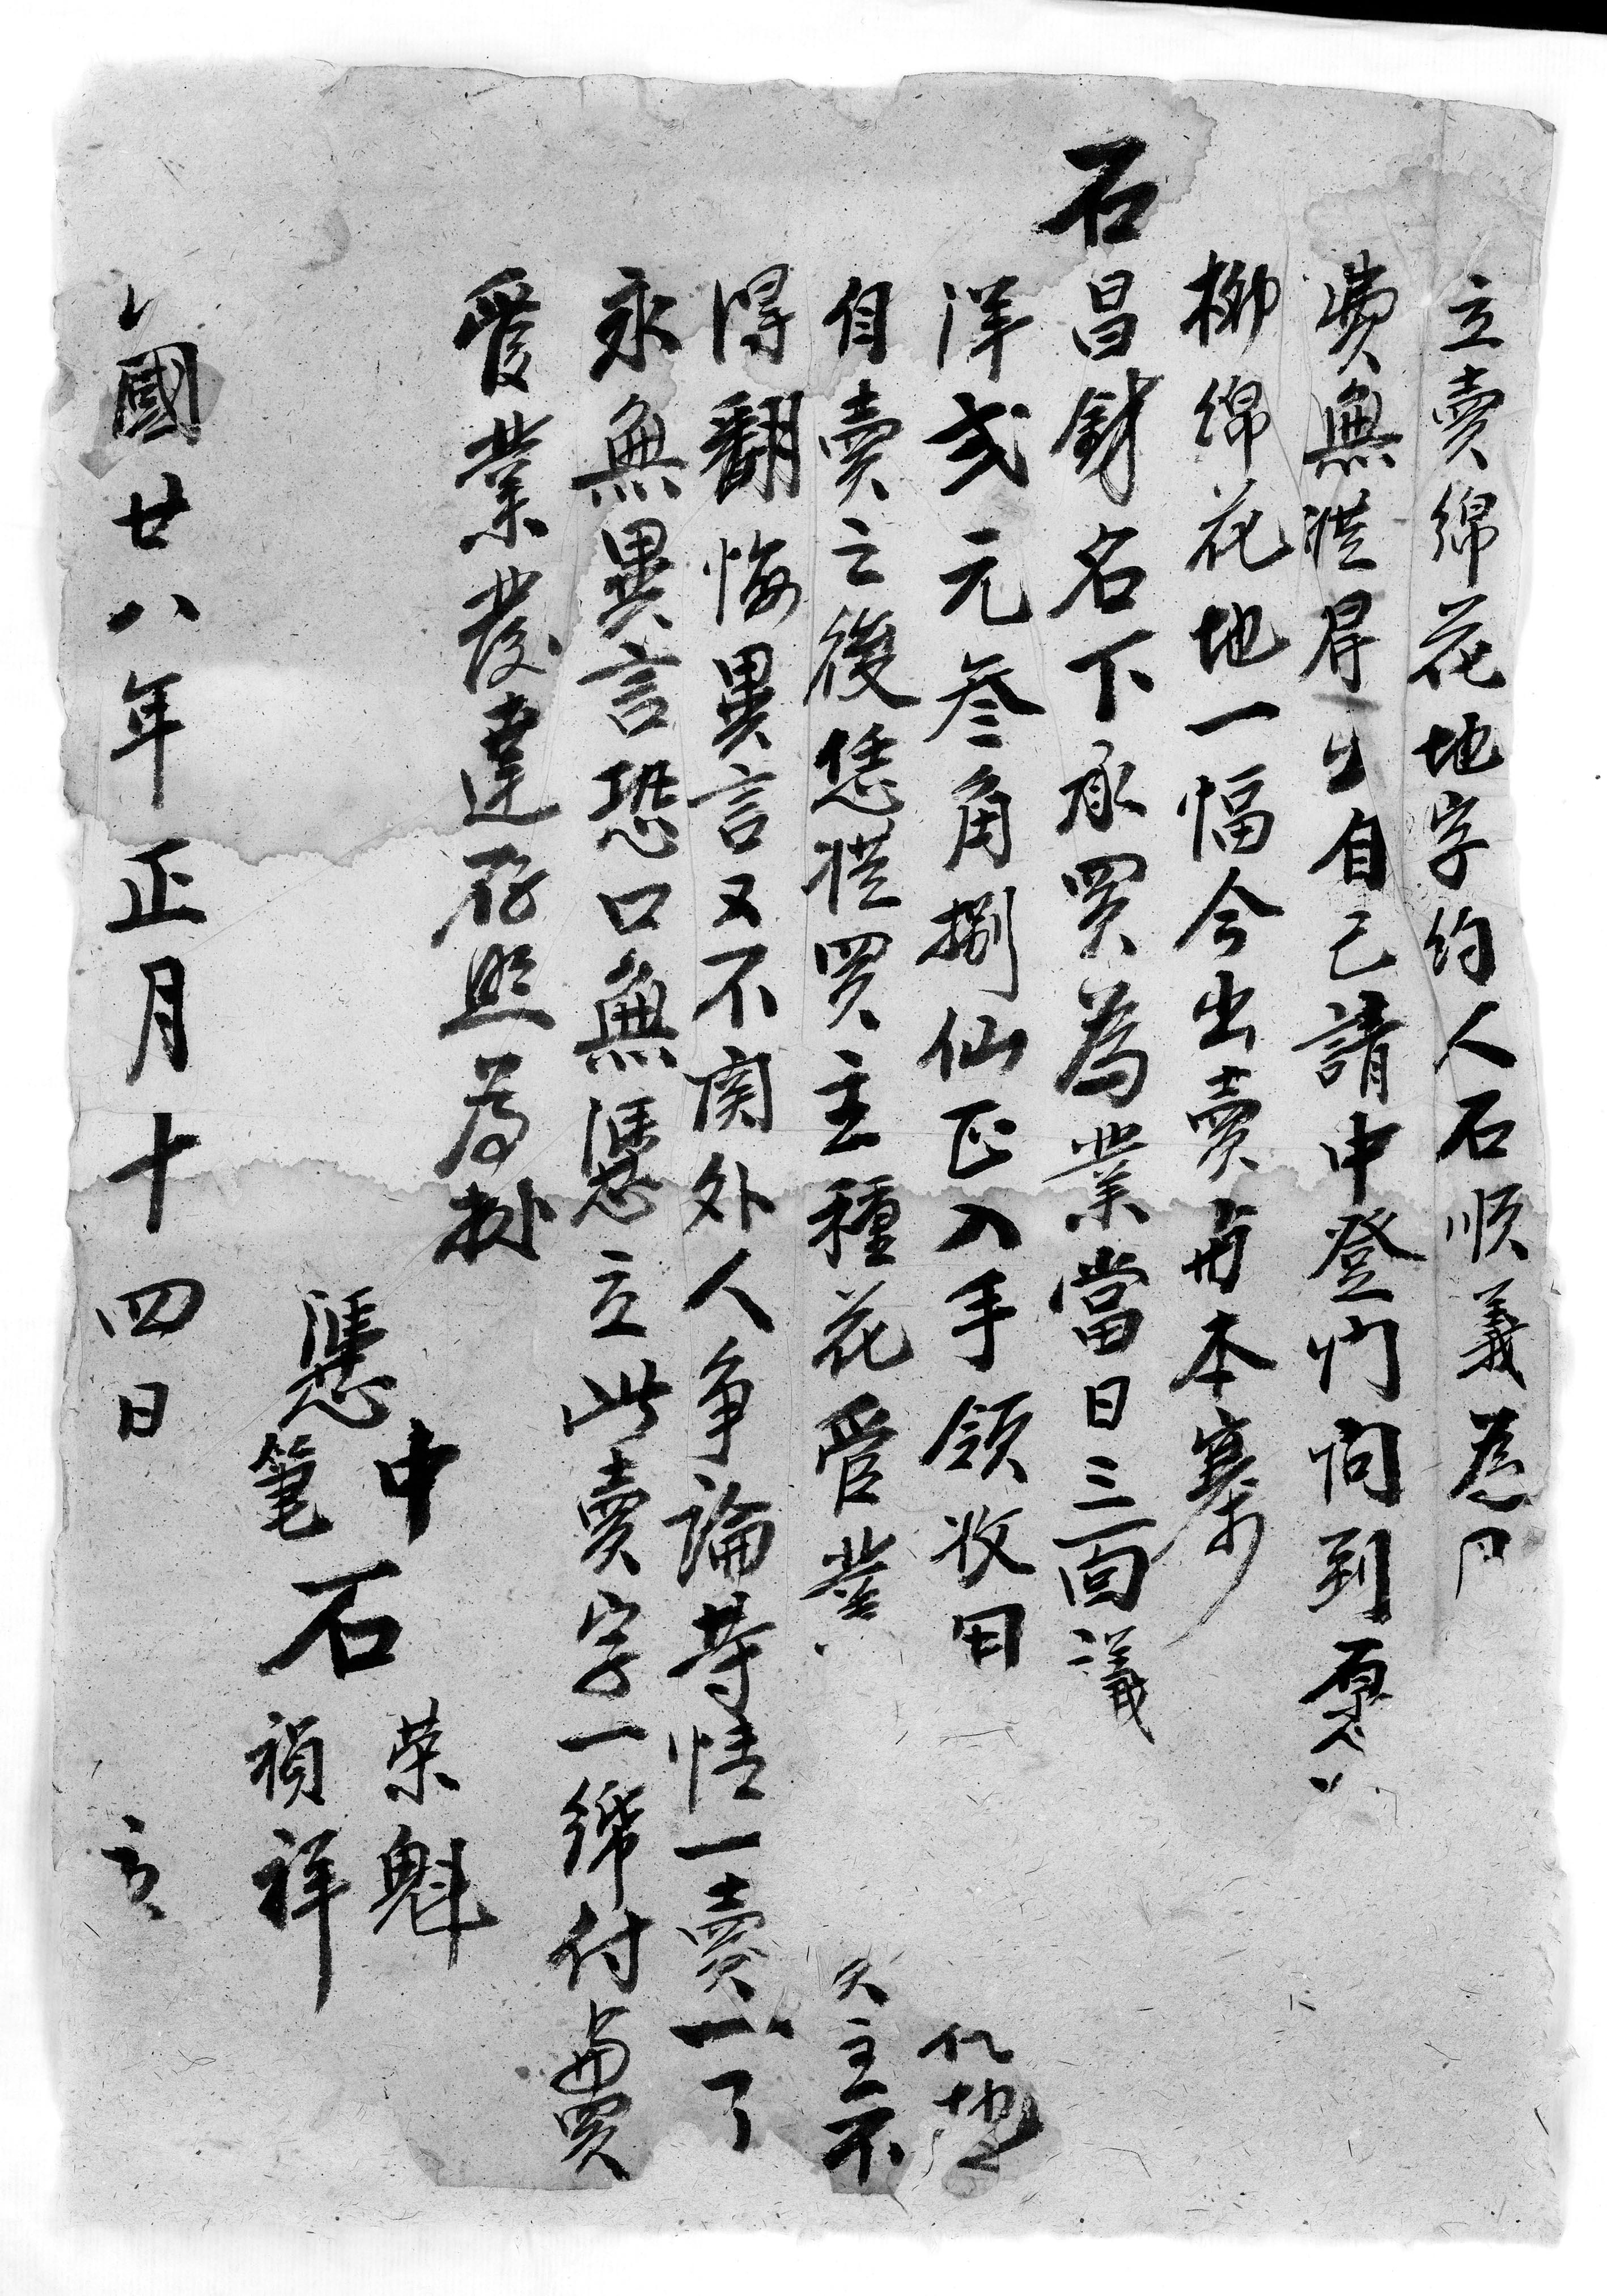 立賣綿花地字約人石順義為用
費無從得出自己請中登門問到
柳綿花地一幅今出賣與本寨
石昌錢名下承買為業當日三面議
洋弍元叁角捌仙正入手領收用 地
自賣之後恁從買主種花管業 主不
得翻悔異言又不関外人争論等情一賣一了
永無異言恐口無憑立此賣字一紙付與買
管業發達存照為據
中 荣魁
憑 石
筆 禎祥
國廿八年正月十四日 立